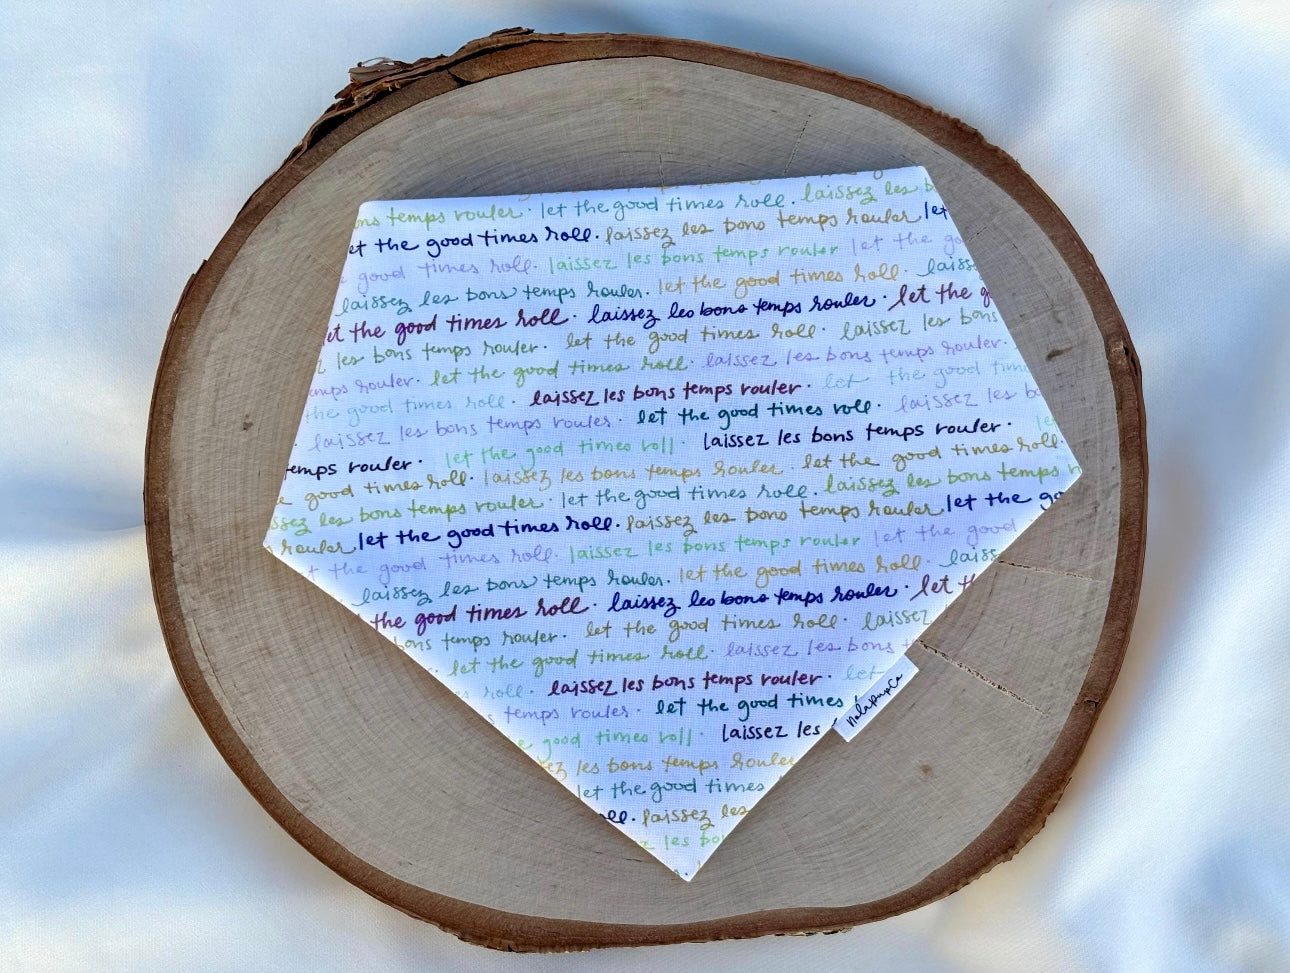 temps rouler. let the good times roll. laissez les
the good times roll. laissez les bons temps rouler let
good times roll. laissez les bons temps rouler let the
laissez les bons temps rouler. let the good times roll.
the good times roll. laissez les bons temps rouler. let the
les bons temps rouler. let the good times roll. laissez les bons
rouler. let the good times roll. laissez les bons temps rouler.
the good times roll. laissez les bons temps rouler. let the good
laissez les bons temps rouler. let the good times roll. laissez les
let the good times roll. laissez les bons temps rouler.
emps rouler.
good times roll. laissez les bons temps rouler. let the good times roll.
les bons temps rouler. let the good times roll. laissez les bons temps
rouler let the good times roll. laissez les bons temps rouler let the
the good times roll. laissez les bons temps rouler let the good
laissez les bons temps rouler. let the good times roll.
the good times roll. laissez les bons temps rouler. let
bons temps rouler. let the good times roll. laissez
let the good times roll. laissez les bons
roll. laissez les bons temps rouler. let
temps rouler. let the good times
good times roll. laissez les
NolaPupCo
les bons temps rouler
let the good times
laissez les
les